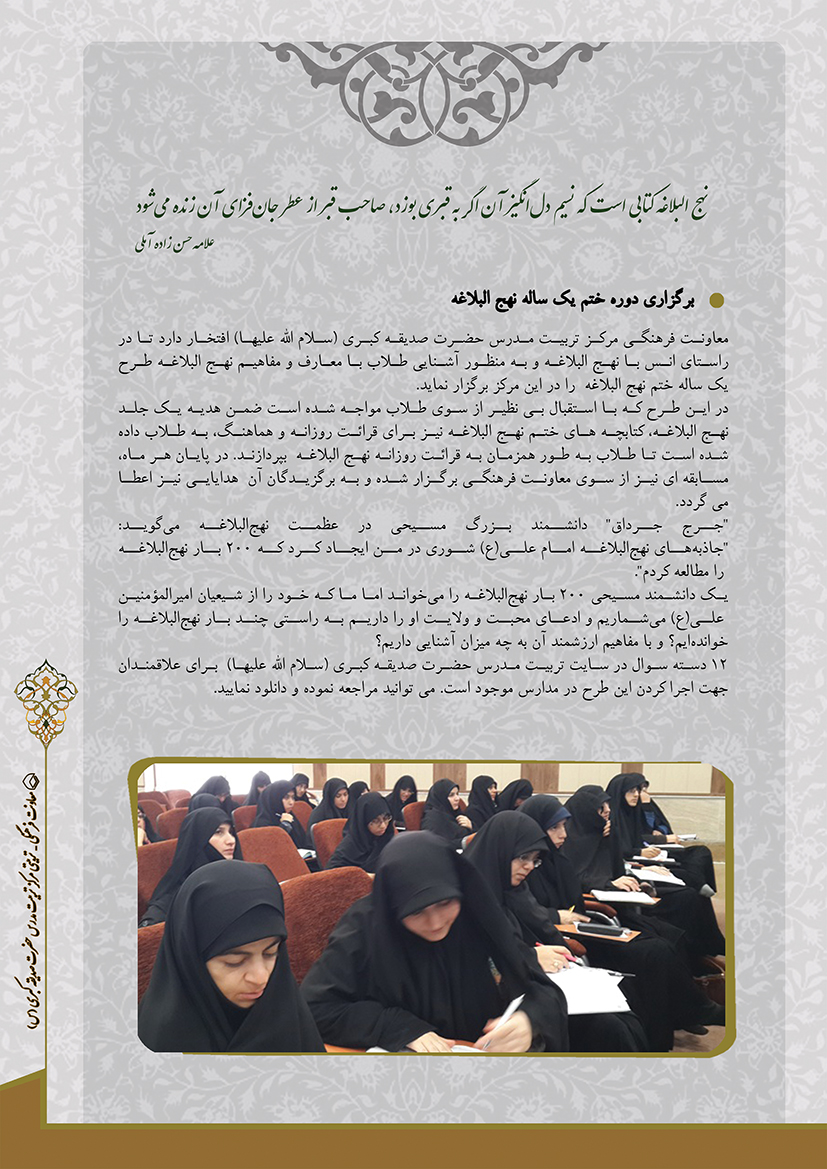 نهج البلاغه کتابی است که نسیم دل‌انگیز آن اگر به قبری بوزد، صاحب قبر از عطر جان‌فزای آن زنده می‌شود
علامه حسن زاده آملی
برگزاری دوره ختم یک ساله نهج البلاغه
معاونت فرهنگی مرکز تربیت مدرس حضرت صدیقه کبری (سلام الله علیها) افتخار دارد تا در
راستای انس با نهج البلاغه و به منظور آشنایی طلاب با معارف و مفاهیم نهج البلاغه طرح
یک ساله ختم نهج البلاغه را در این مرکز برگزار نماید.
در این طرح که با استقبال بی نظیر از سوی طلاب مواجه شده است ضمن هدیه یک جلد
نهج البلاغه، کتابچه های ختم نهج البلاغه نیز برای قرائت روزانه و هماهنگ، به طلاب داده
شده است تا طلاب به طور همزمان به قرائت روزانه نهج البلاغه بپردازند. در پایان هر ماه،
مسابقه ای نیز از سوی معاونت فرهنگی برگزار شده و به برگزیدگان آن هدایایی نیز اعطا
می گردد.
"جرج جرداق" دانشمند بزرگ مسیحی در عظمت نهج‌البلاغه می‌گوید:
"جاذبه‌های نهج‌البلاغه امام علی(ع) شوری در من ایجاد کرد که ۲۰۰ بار نهج‌البلاغه
را مطالعه کردم".
یک دانشمند مسیحی ۲۰۰ بار نهج‌البلاغه را می‌خواند اما ما که خود را از شیعیان امیرالمؤمنین
علی(ع) می‌شماریم و ادعای محبت و ولایت او را داریم به راستی چند بار نهج‌البلاغه را
خوانده‌ایم؟ و با مفاهیم ارزشمند آن به چه میزان آشنایی داریم؟
۱۲ دسته سوال در سایت تربیت مدرس حضرت صدیقه کبری (سلام الله علیها) برای علاقمندان
جهت اجرا کردن این طرح در مدارس موجود است. می توانید مراجعه نموده و دانلود نمایید.
معاونت فرهنگی - تربیتی مرکز تربیت مدرس حضرت صدیقه کبری (س)